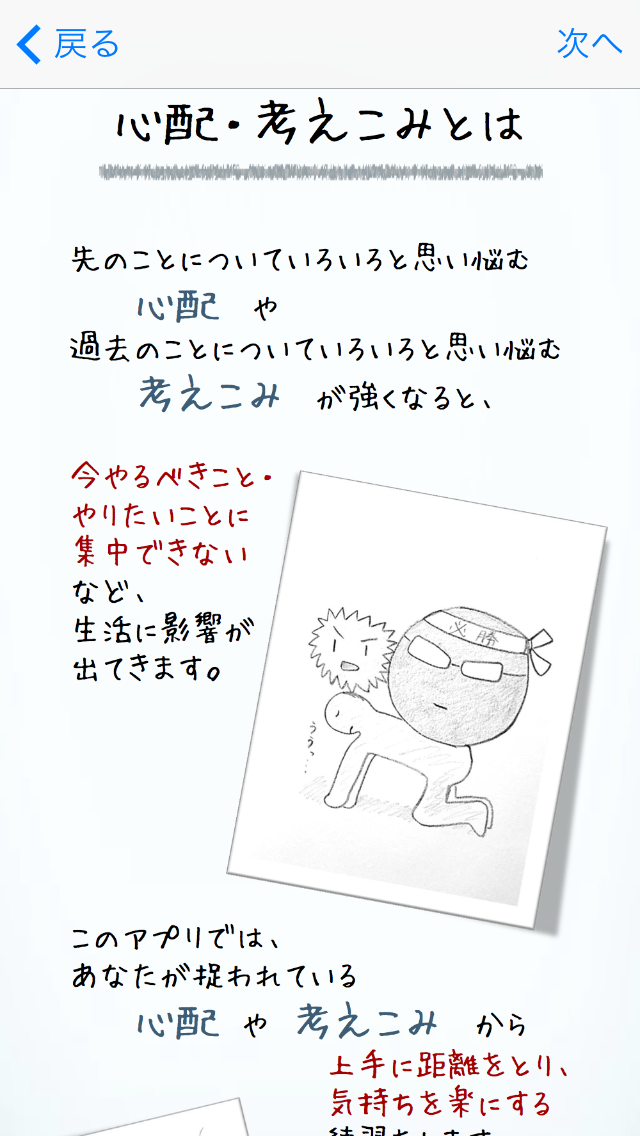 戻る
次へ
心配・考えこみとは
先のことについていろいろと思い悩む
心配 や
過去のことについていろいろと思い悩む
考えこみ が強くなると、
今やるべきこと・
やりたいことに
集中できない
など、
生活に影響が
出てきます。
必勝
うぅっ…
このアプリでは、
あなたが捉われている
心配 や 考えこみ から
上手に距離をとり、
気持ちを楽にする
練習をします